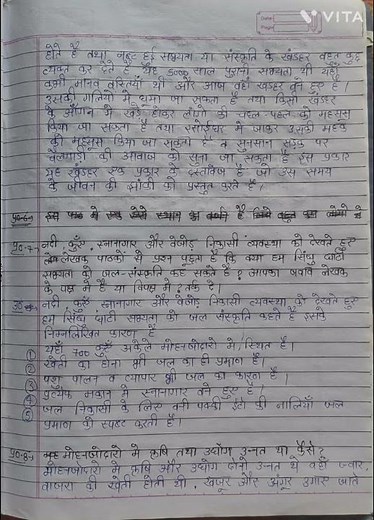 VITA
होते है तथा नष्ट हुई सभ्यता या संस्कृति के खंडहर बहुत कुछ
व्यक्त कर देते है यह 5000 साल पुरानी सभ्यता थी यहाँ
कभी मानव बस्तियाँ थी और आज वहाँ खंडहर बने हुए है।
उसकी गलियों में घूमा जा सकता है तथा किसी खंडहर
के आँगन में खड़े होकर लोगो की चहल पहल को महसूस
किया जा सकता है तथा रसोईघर में जाकर उसकी महक
को महसूस किया जा सकता है व सुनसान सड़क पर
बैलगाड़ी की आवाज को सुना जा सकता है इस प्रकार
यह खंडहर एक प्रकार के दस्तावेज है जो उस समय
के जीवन की झाँकी को प्रस्तुत करते है।
प्र०-6
प्र०-7 नदी कुएँ, स्नानागार और बेजोड़ निकासी व्यवस्था को देखते हुए
लेखक पाठकों से प्रश्न पूछता है कि क्या हम सिंधु घाटी
सभ्यता को जल-संस्कृति कह सकते है? आपका जवाब लेखक
के पक्ष में है या विपक्ष में? तर्क दे।
उ० नदी कुएँ स्नानागार और बेजोड़ निकासी व्यवस्था को देखते हुए
हम सिंधु घाटी सभ्यता को जल संस्कृति कहते है इसके
निम्नलिखित कारण है
① यहाँ 700 कुएँ अकेले मोहनजोदारो में स्थित है।
② खेती का होना भी जल का ही प्रमाण है।
③ पशु पालन व व्यापार भी जल का कारण है।
④ प्रत्येक मकान में स्नानागार बने हुए है।
⑤ जल निकासी के लिए बनी पक्की ईंटो की नालियाँ जल
प्रमाण को स्पष्ट करती है।
प्र०-8 मोहनजोदारो में कृषि तथा उद्योग उन्नत था कैसे?
मोहनजोदारो में कृषि और उद्योग दोनो उन्नत थे वहाँ ज्वार,
बाजरा की खेती होती थी, खजूर और अंगूर उगाए जाते